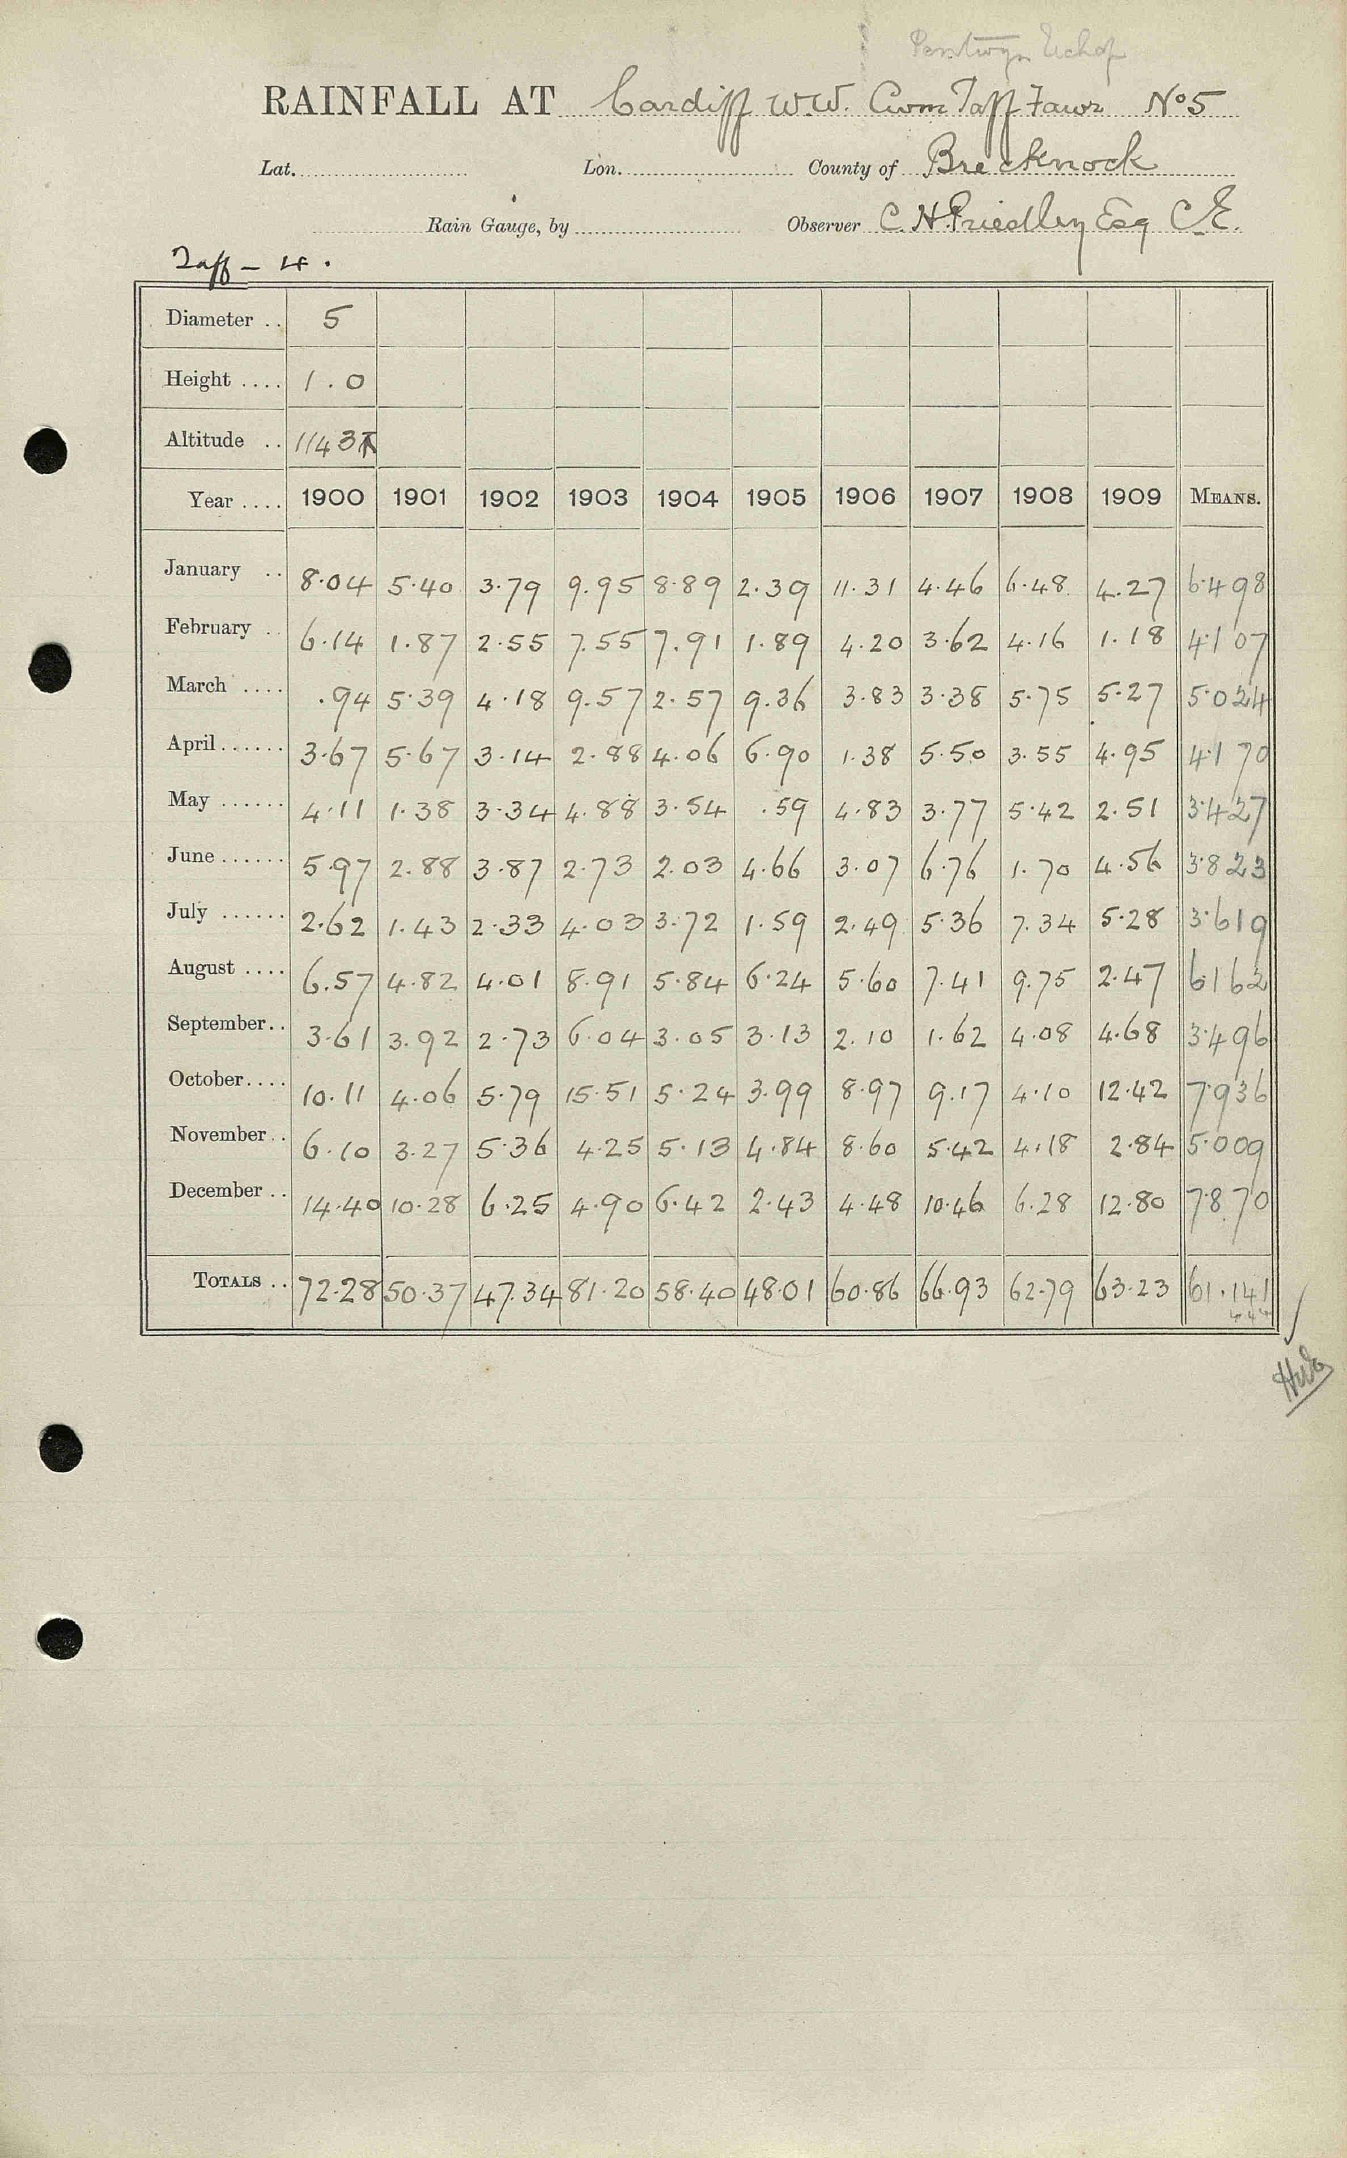 Pentwyn Uchaf
RAINFALL AT Cardiff W.W. Cwm Taff Fawr No 5
Lat. Lon. County of Brecknock
Rain Gauge, by Observer C. H. Priestley Esq C.E.
Taff - 4.
Diameter .. 5
Height .... 1.0
Altitude .. 1143
Year .... 1900 1901 1902 1903 1904 1905 1906 1907 1908 1909 MEANS.
January .. 8.04 5.40 3.79 9.95 8.89 2.39 11.31 4.46 6.48 4.27 6.498
February .. 6.14 1.87 2.55 7.55 7.91 1.89 4.20 3.62 4.16 1.18 4.107
March .... .94 5.39 4.18 9.57 2.57 9.36 3.83 3.38 5.75 5.27 5.024
April ...... 3.67 5.67 3.14 2.88 4.06 6.90 1.38 5.50 3.55 4.95 4.170
May ...... 4.11 1.38 3.34 4.88 3.54 .59 4.83 3.77 5.42 2.51 3.427
June ...... 5.97 2.88 3.87 2.73 2.03 4.66 3.07 6.76 1.70 4.56 3.823
July ...... 2.62 1.43 2.33 4.03 3.72 1.59 2.49 5.36 7.34 5.28 3.619
August .... 6.57 4.82 4.01 8.91 5.84 6.24 5.60 7.41 9.75 2.47 6.162
September.. 3.61 3.92 2.73 6.04 3.05 3.13 2.10 1.62 4.08 4.68 3.496
October.... 10.11 4.06 5.79 15.51 5.24 3.99 8.97 9.17 4.10 12.42 7.936
November.. 6.10 3.27 5.36 4.25 5.13 4.84 8.60 5.42 4.18 2.84 5.009
December .. 14.40 10.28 6.25 4.90 6.42 2.43 4.48 10.46 6.28 12.80 7.870
TOTALS .. 72.28 50.37 47.34 81.20 58.40 48.01 60.86 66.93 62.79 63.23 61.141